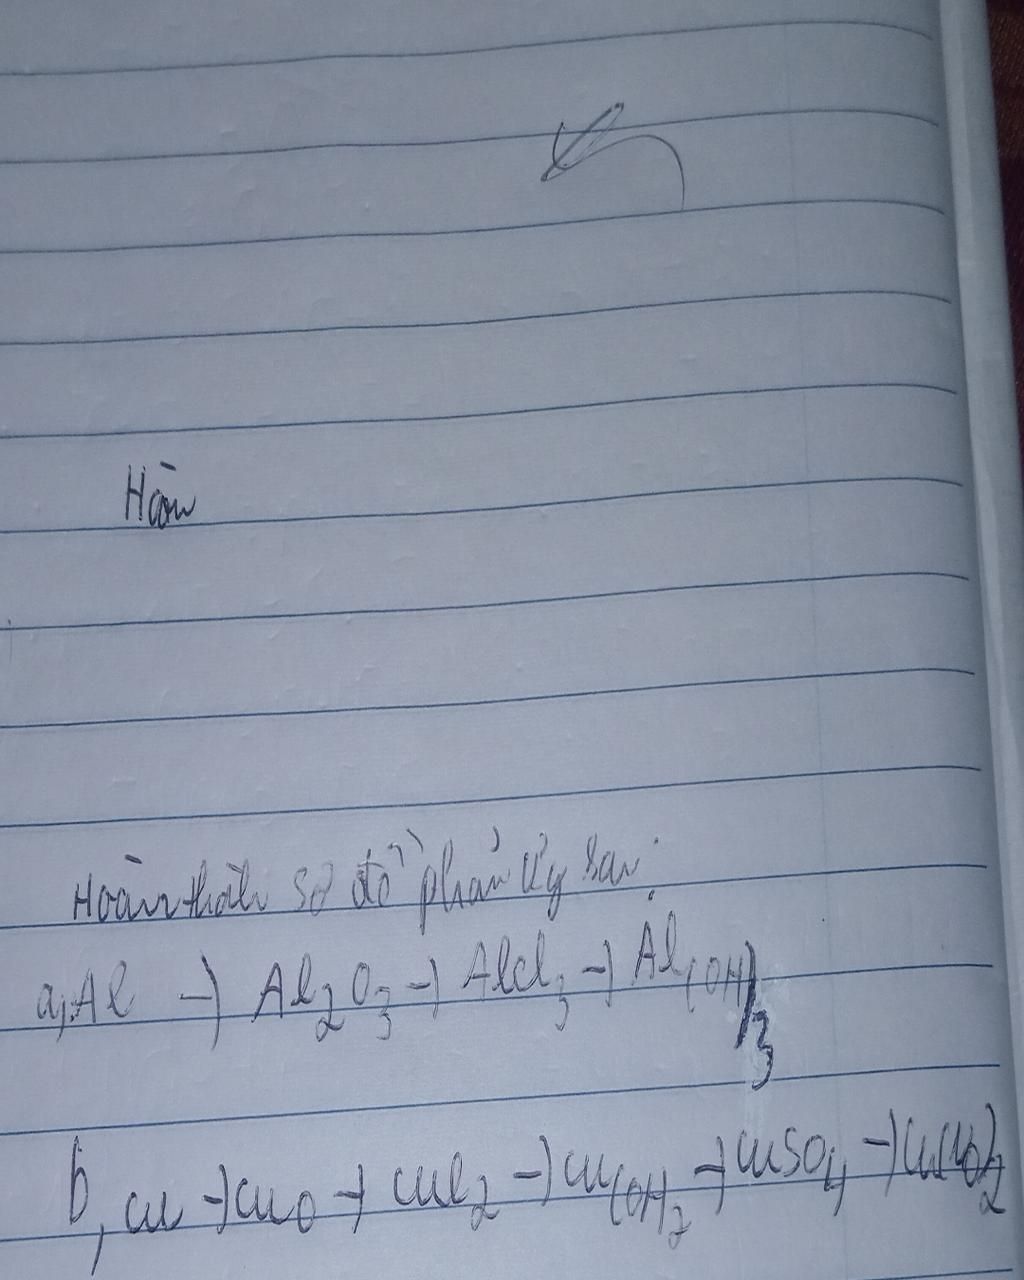 Hoàn
Hoàn thành sơ đồ phản ứng sau:
a, Al → Al₂O₃ → AlCl₃ → Al(OH)₃
b, Cu → CuO → CuCl₂ → Cu(OH)₂ → CuSO₄ →